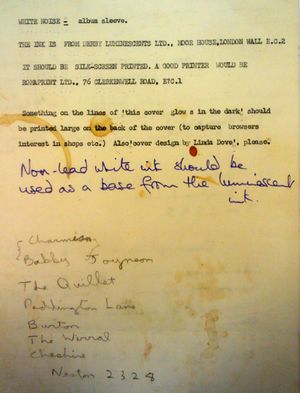 WHITE NOISE - album sleeve.
THE INK IS FROM DERBY LUMINESCENTS LTD., MOOR HOUSE, LONDON WALL E.C.2
IT SHOULD BE SILK-SCREEN PRINTED. A GOOD PRINTER WOULD BE
BONAPRINT LTD., 76 CLERKENWELL ROAD, EC.1
Something on the lines of 'this cover glow s in the dark' should
be printed large on the back of the cover (to capture browsers
interest in shops etc.) Also 'cover design by Linda Dove', please.
Non-lead white ink should be
used as a base from the luminescent
ink.
Charmian
Bobby
The Quillet
Paddington Lane
Burton
The Wirral
Cheshire
Neston 2328